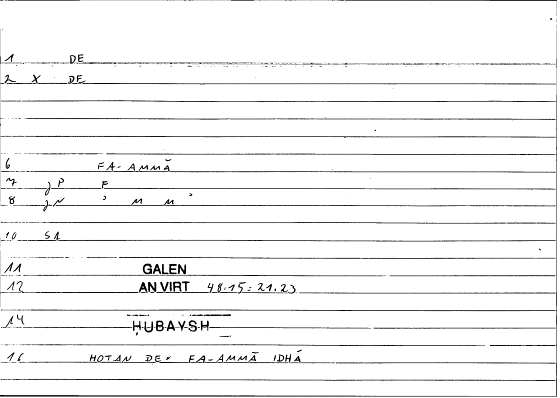 1 DE
2 X DE
6 FA-AMMĀ
7 P F
8 N ʾ M M ʾ
10 SA
11 GALEN
12 AN VIRT 48.15:21.23
14 ḤUBAYSH
16 HOTAN DE FA-AMMĀ IDHĀ